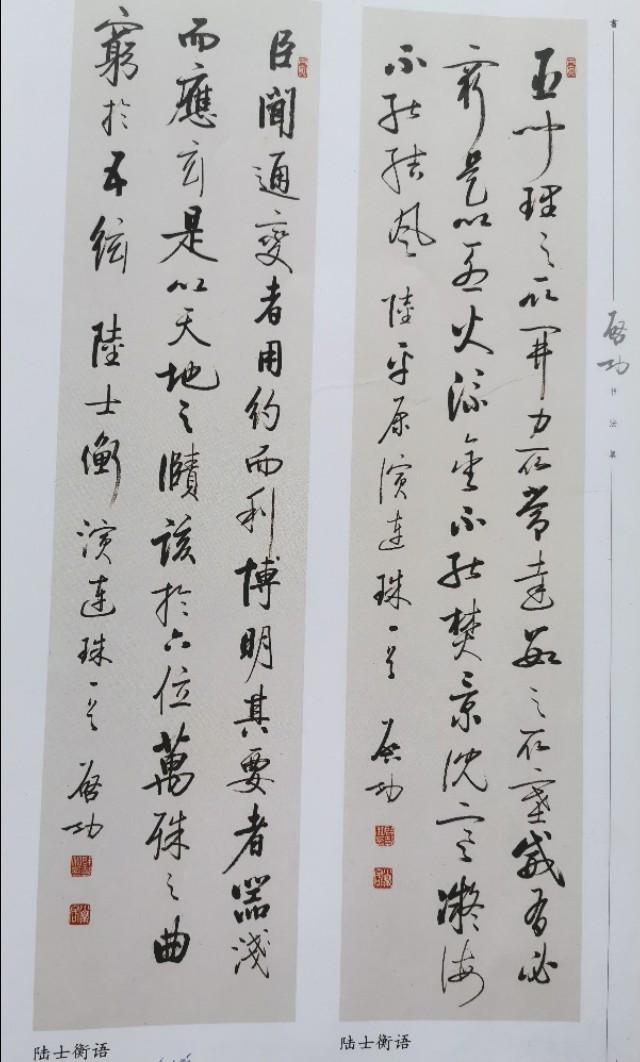 臣聞理之所開力所常達數之所塞威有必
窮是以烈火流金不能焚景沈寒凝海
不能結風 陸平原演連珠一首 啟功
陆士衡语
臣聞通變者用約而利博明其要者器淺
而應玄是以天地之賾該於六位萬殊之曲
窮於五絃 陸士衡演連珠一首 啟功
陆士衡语
啟功书法集